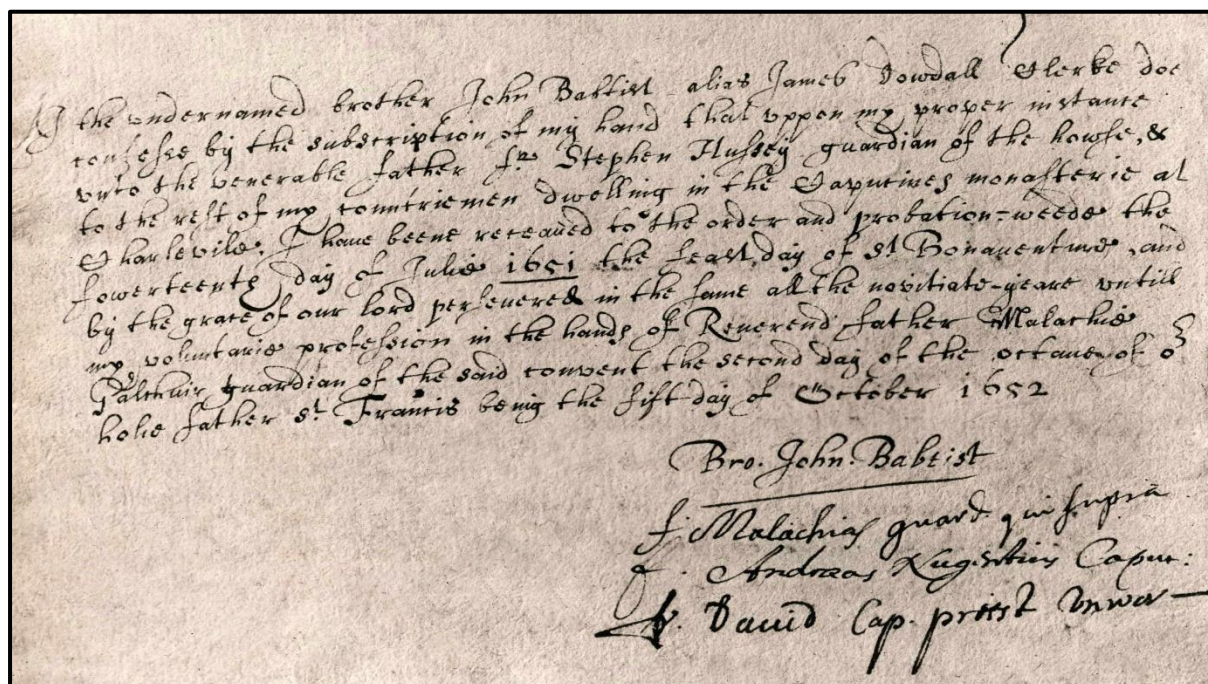 I the vndernamed brother John Babtist alias James Dowdall Clerke doe
confesse by the subscription of my hand that vppon my proper instance
vnto the venerable father fr. Stephen Hussey guardian of the howse, &
to the rest of my countriemen dwelling in the Capucines monasterie at
Charlevile, I haue beene receaued to the order and probation-weede the
fowerteenth day of Julie 1651 the feast day of St. Bonauenture, and
by the grace of our lord perseuered in the same all the novitiate-yeare vntill
my voluntarie profession in the hands of Reverend father Malachie
guardian of the said convent the second day of the octave of or
holie father St. Francis being the fift day of October 1652
Bro. John. Babtist
f. Malachias guard. qui supra
f. Andraeas Nugentius Capuc:
fr. Dauid Cap. priest vnwor